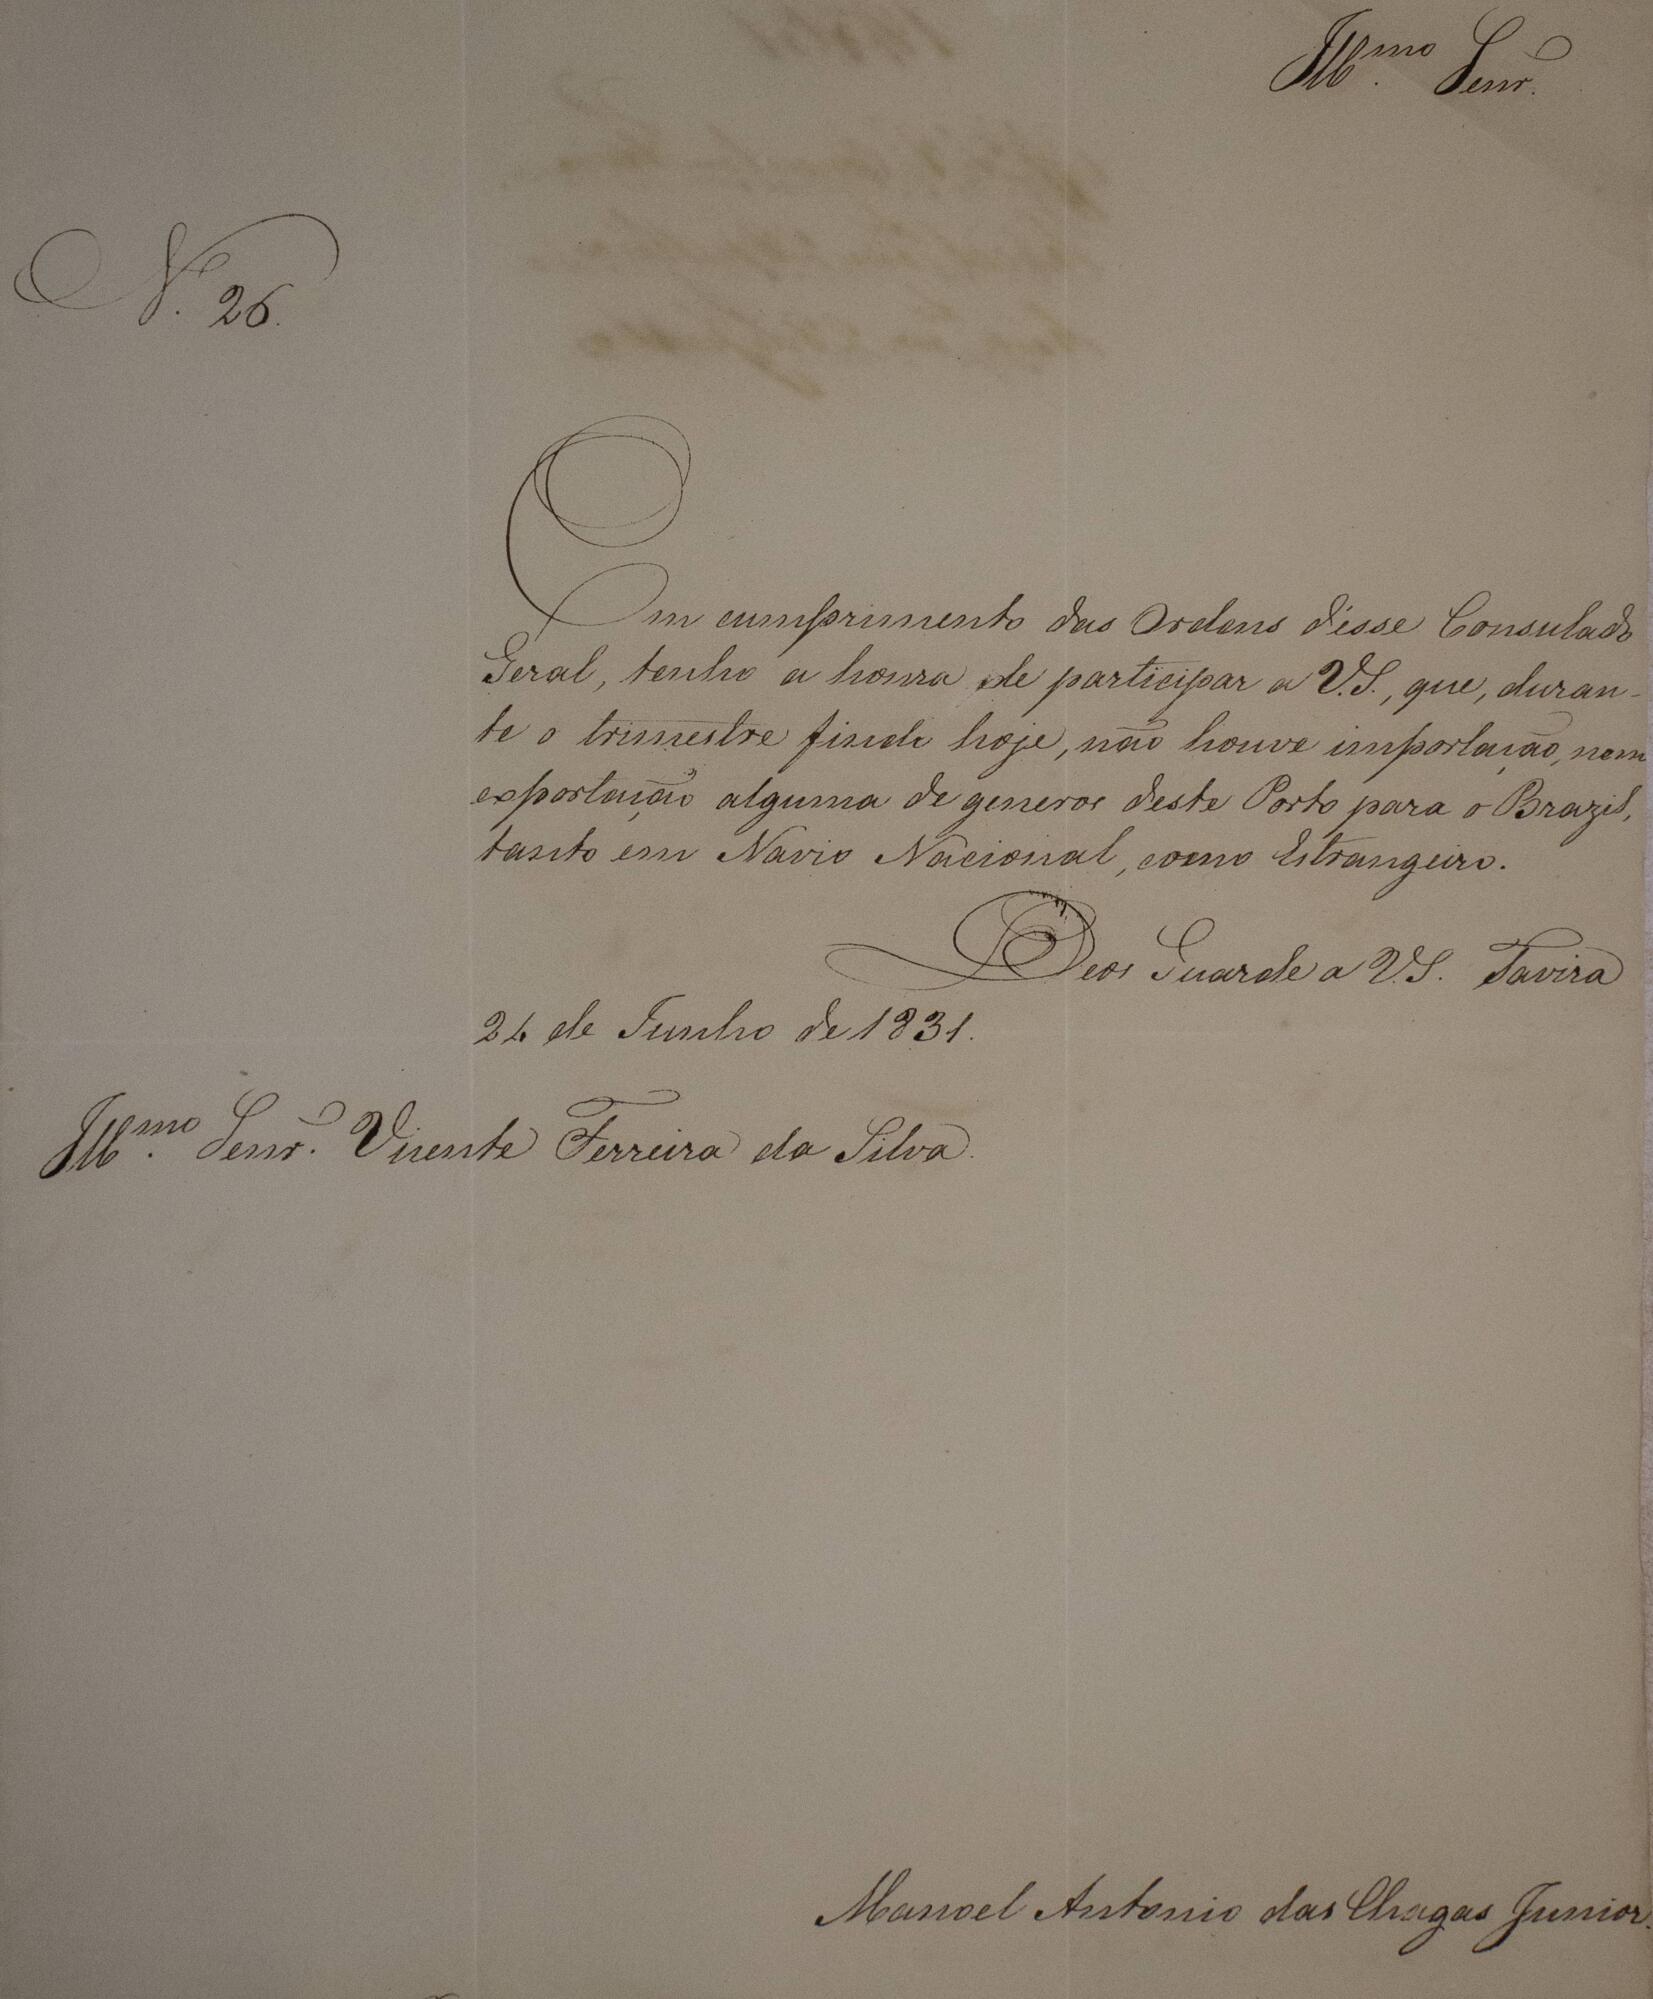 Illmo. Senr.
N. 26.
Em cumprimento das Ordens désse Consulado
Geral, tenho a honra de participar a V.S., que, duran-
te o trimestre findo hoje, não houve importação, nem
exportação alguma de generos deste Porto para o Brazil,
tanto em Navio Nacional, como Estrangeiro.
Deos Guarde a V.S. Tavira
24 de Junho de 1831.
Illmo. Senr. Vicente Ferreira da Silva.
Manoel Antonio das Chagas Junior.